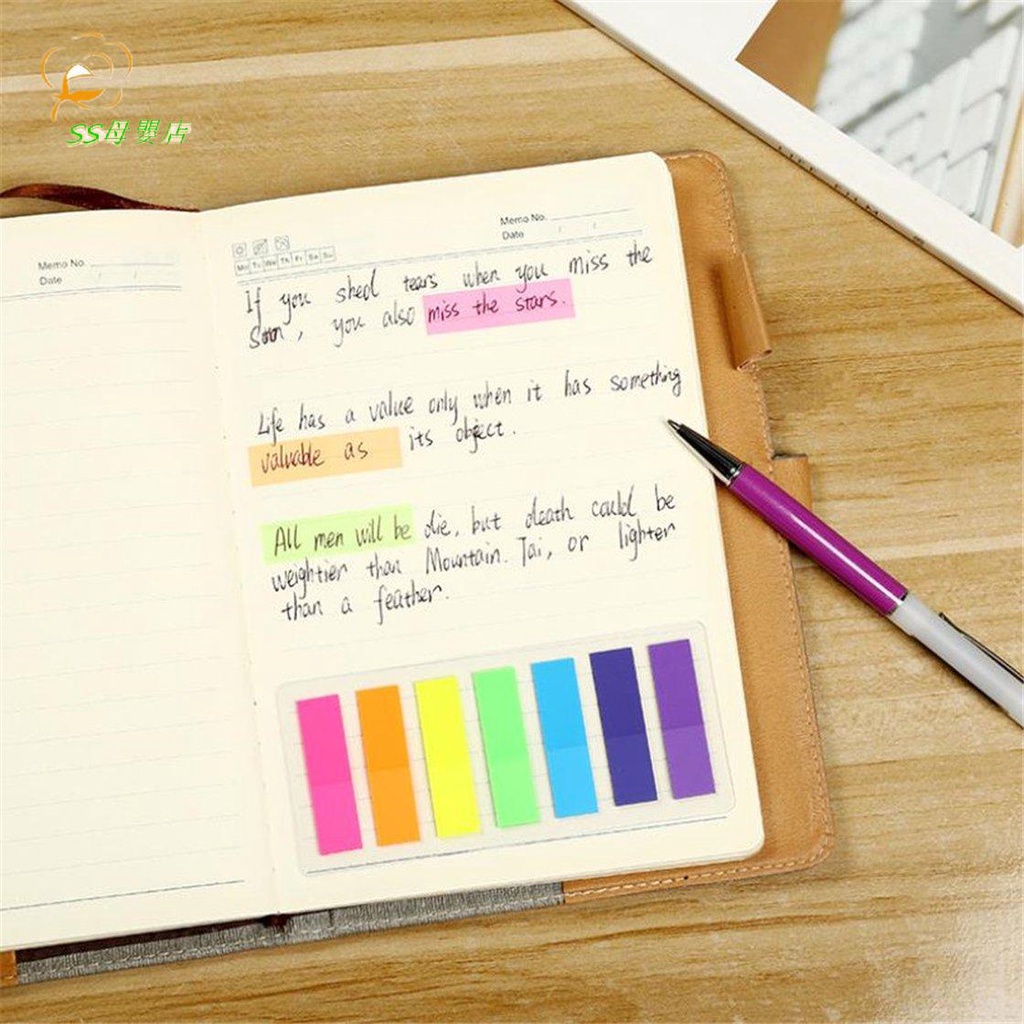 SS母嬰店
Memo No.
Date / /
Memo No.
Date / /
Mo Tu We Th Fr Sa Su
If you shed tears when you miss the
Sun, you also miss the stars.
Life has a value only when it has something
valuable as its object.
All men will be die, but death could be
weightier than Mountain. Tai, or lighter
than a feather.